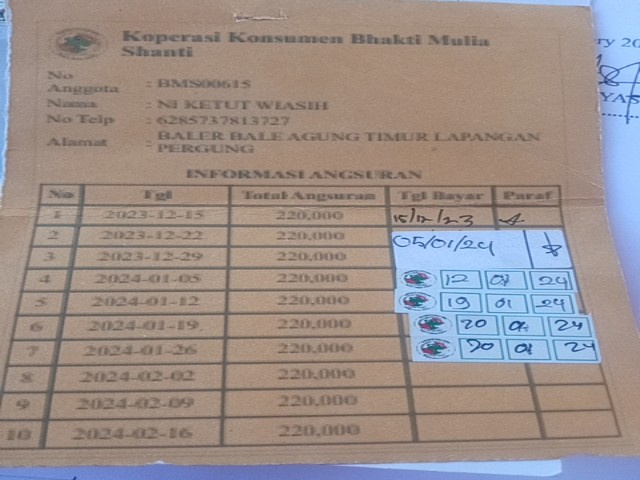 Koperasi Konsumen Bhakti Mulia
Shanti
No
Anggota : BMS00615
Nama : NI KETUT WIASIH
No Telp : 6285737813727
Alamat : BALER BALE AGUNG TIMUR LAPANGAN
PERGUNG
INFORMASI ANGSURAN
No Tgl Total Angsuran Tgl Bayar Paraf
1 2023-12-15 220,000 15/12/23
2 2023-12-22 220,000 05/01/24
3 2023-12-29 220,000
4 2024-01-05 220,000 12 01 24
5 2024-01-12 220,000 19 01 24
6 2024-01-19 220,000 20 01 24
7 2024-01-26 220,000 01 24
8 2024-02-02 220,000
9 2024-02-09 220,000
10 2024-02-16 220,000